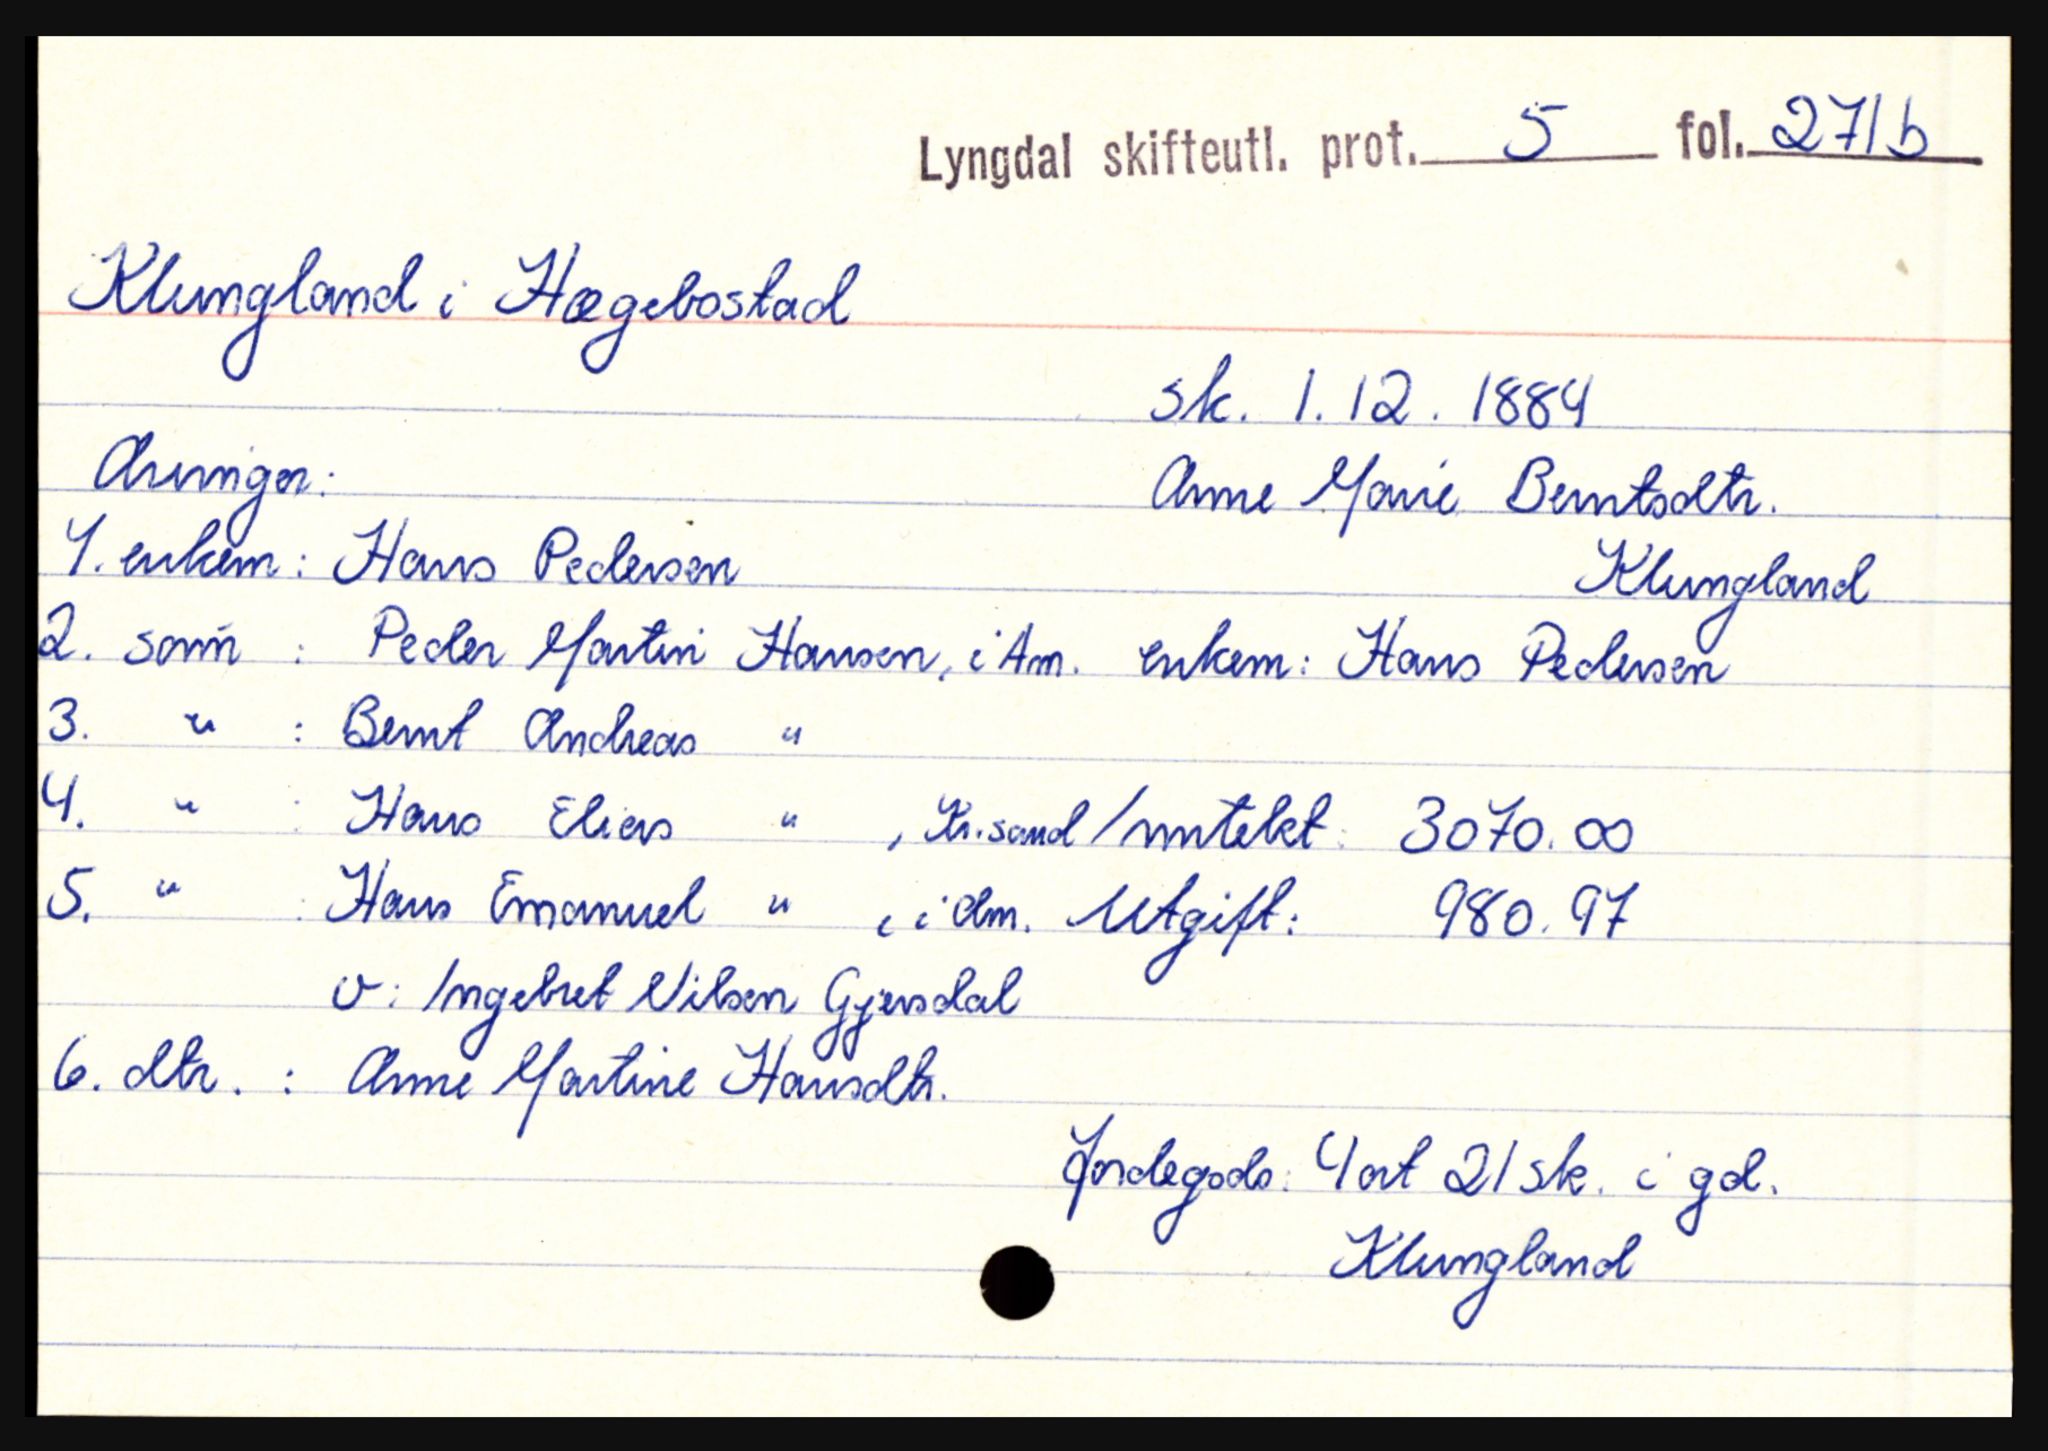 Lyngdal skifteutl. prot. 5 fol. 271b
Klungland i Hægebostad
sk. 1.12.1884
Arvinger:
Anne Marie Berntsdtr.
Klungland
1. enkem: Hans Pedersen
enkem: Hans Pedersen
2. sønn : Peder Martin Hansen, i Am.
3. " : Bernt Andreas "
4. " : Hans Elias " , Kr.sand
Inntekt: 3070.00
5. " : Hans Emanuel " , i Am.
Utgift: 980.97
v: Ingebret Nilsen Gjersdal
6. dtr. : Anne Martine Hansdtr.
Jordegods: 4 ort 21 sk. i gd.
Klungland